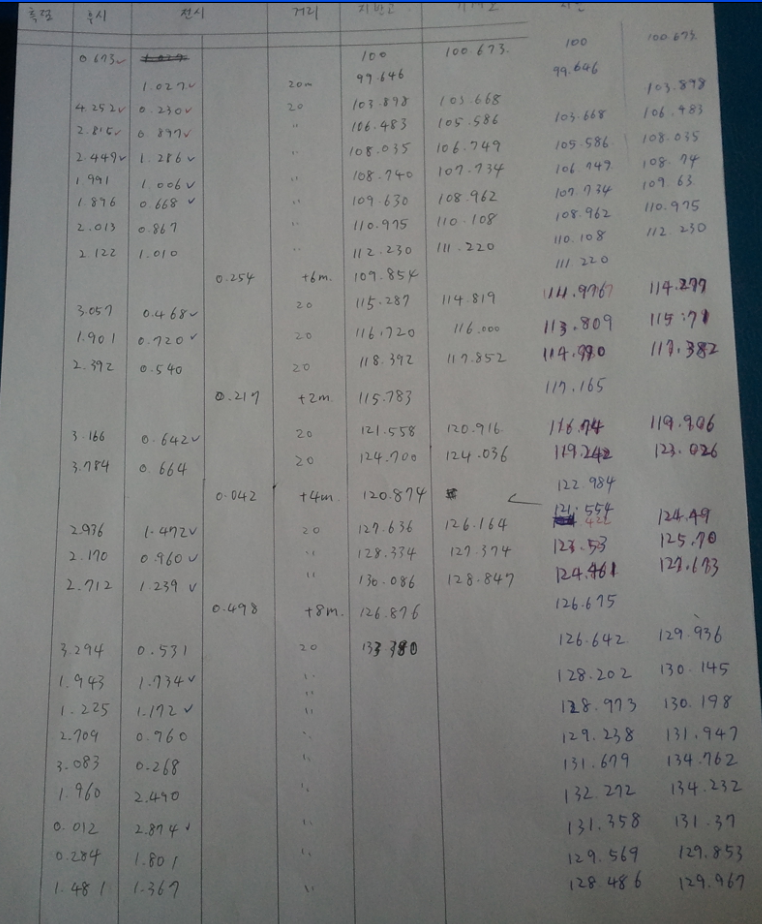 측점 후시 전시 거리 지반고
0.673 100 100.673 100 100.673
1.027 20m 99.646 99.646
4.252 0.230 20 103.898 103.668 103.898
2.815 0.897 " 106.483 105.586 103.668 106.483
2.449 1.286 " 108.035 106.749 105.586 108.035
1.991 1.006 " 108.740 107.734 106.749 108.74
1.896 0.668 " 109.630 108.962 107.734 109.63
2.013 0.867 " 110.975 110.108 108.962 110.975
2.122 1.010 " 112.230 111.220 110.108 112.230
111.220
0.254 +6m. 109.854
3.057 0.468 20 115.287 114.819 114.277
1.901 0.720 20 116.720 116.000 113.809 115.71
2.392 0.540 20 118.392 117.852 114.990 117.382
0.217 +2m. 115.783 117.165
3.166 0.642 20 121.558 120.916 116.74 119.906
3.784 0.664 20 124.700 124.036 119.242 123.026
0.042 +4m. 120.874 122.984
121.554
2.936 1.472 20 127.636 126.164 422 124.49
2.170 0.960 " 128.334 127.374 123.53 125.70
2.712 1.239 " 130.086 128.847 124.461 127.173
0.498 +8m. 126.876 126.675
3.294 0.531 20 126.642 129.936
1.943 1.734 " 128.202 130.145
1.225 1.172 " 128.973 130.198
2.709 0.960 " 129.238 131.947
3.083 0.268 " 131.679 134.762
1.960 2.490 " 132.272 134.232
0.012 2.874 " 131.358 131.37
0.284 1.801 " 129.569 129.853
1.481 1.367 " 128.486 129.967